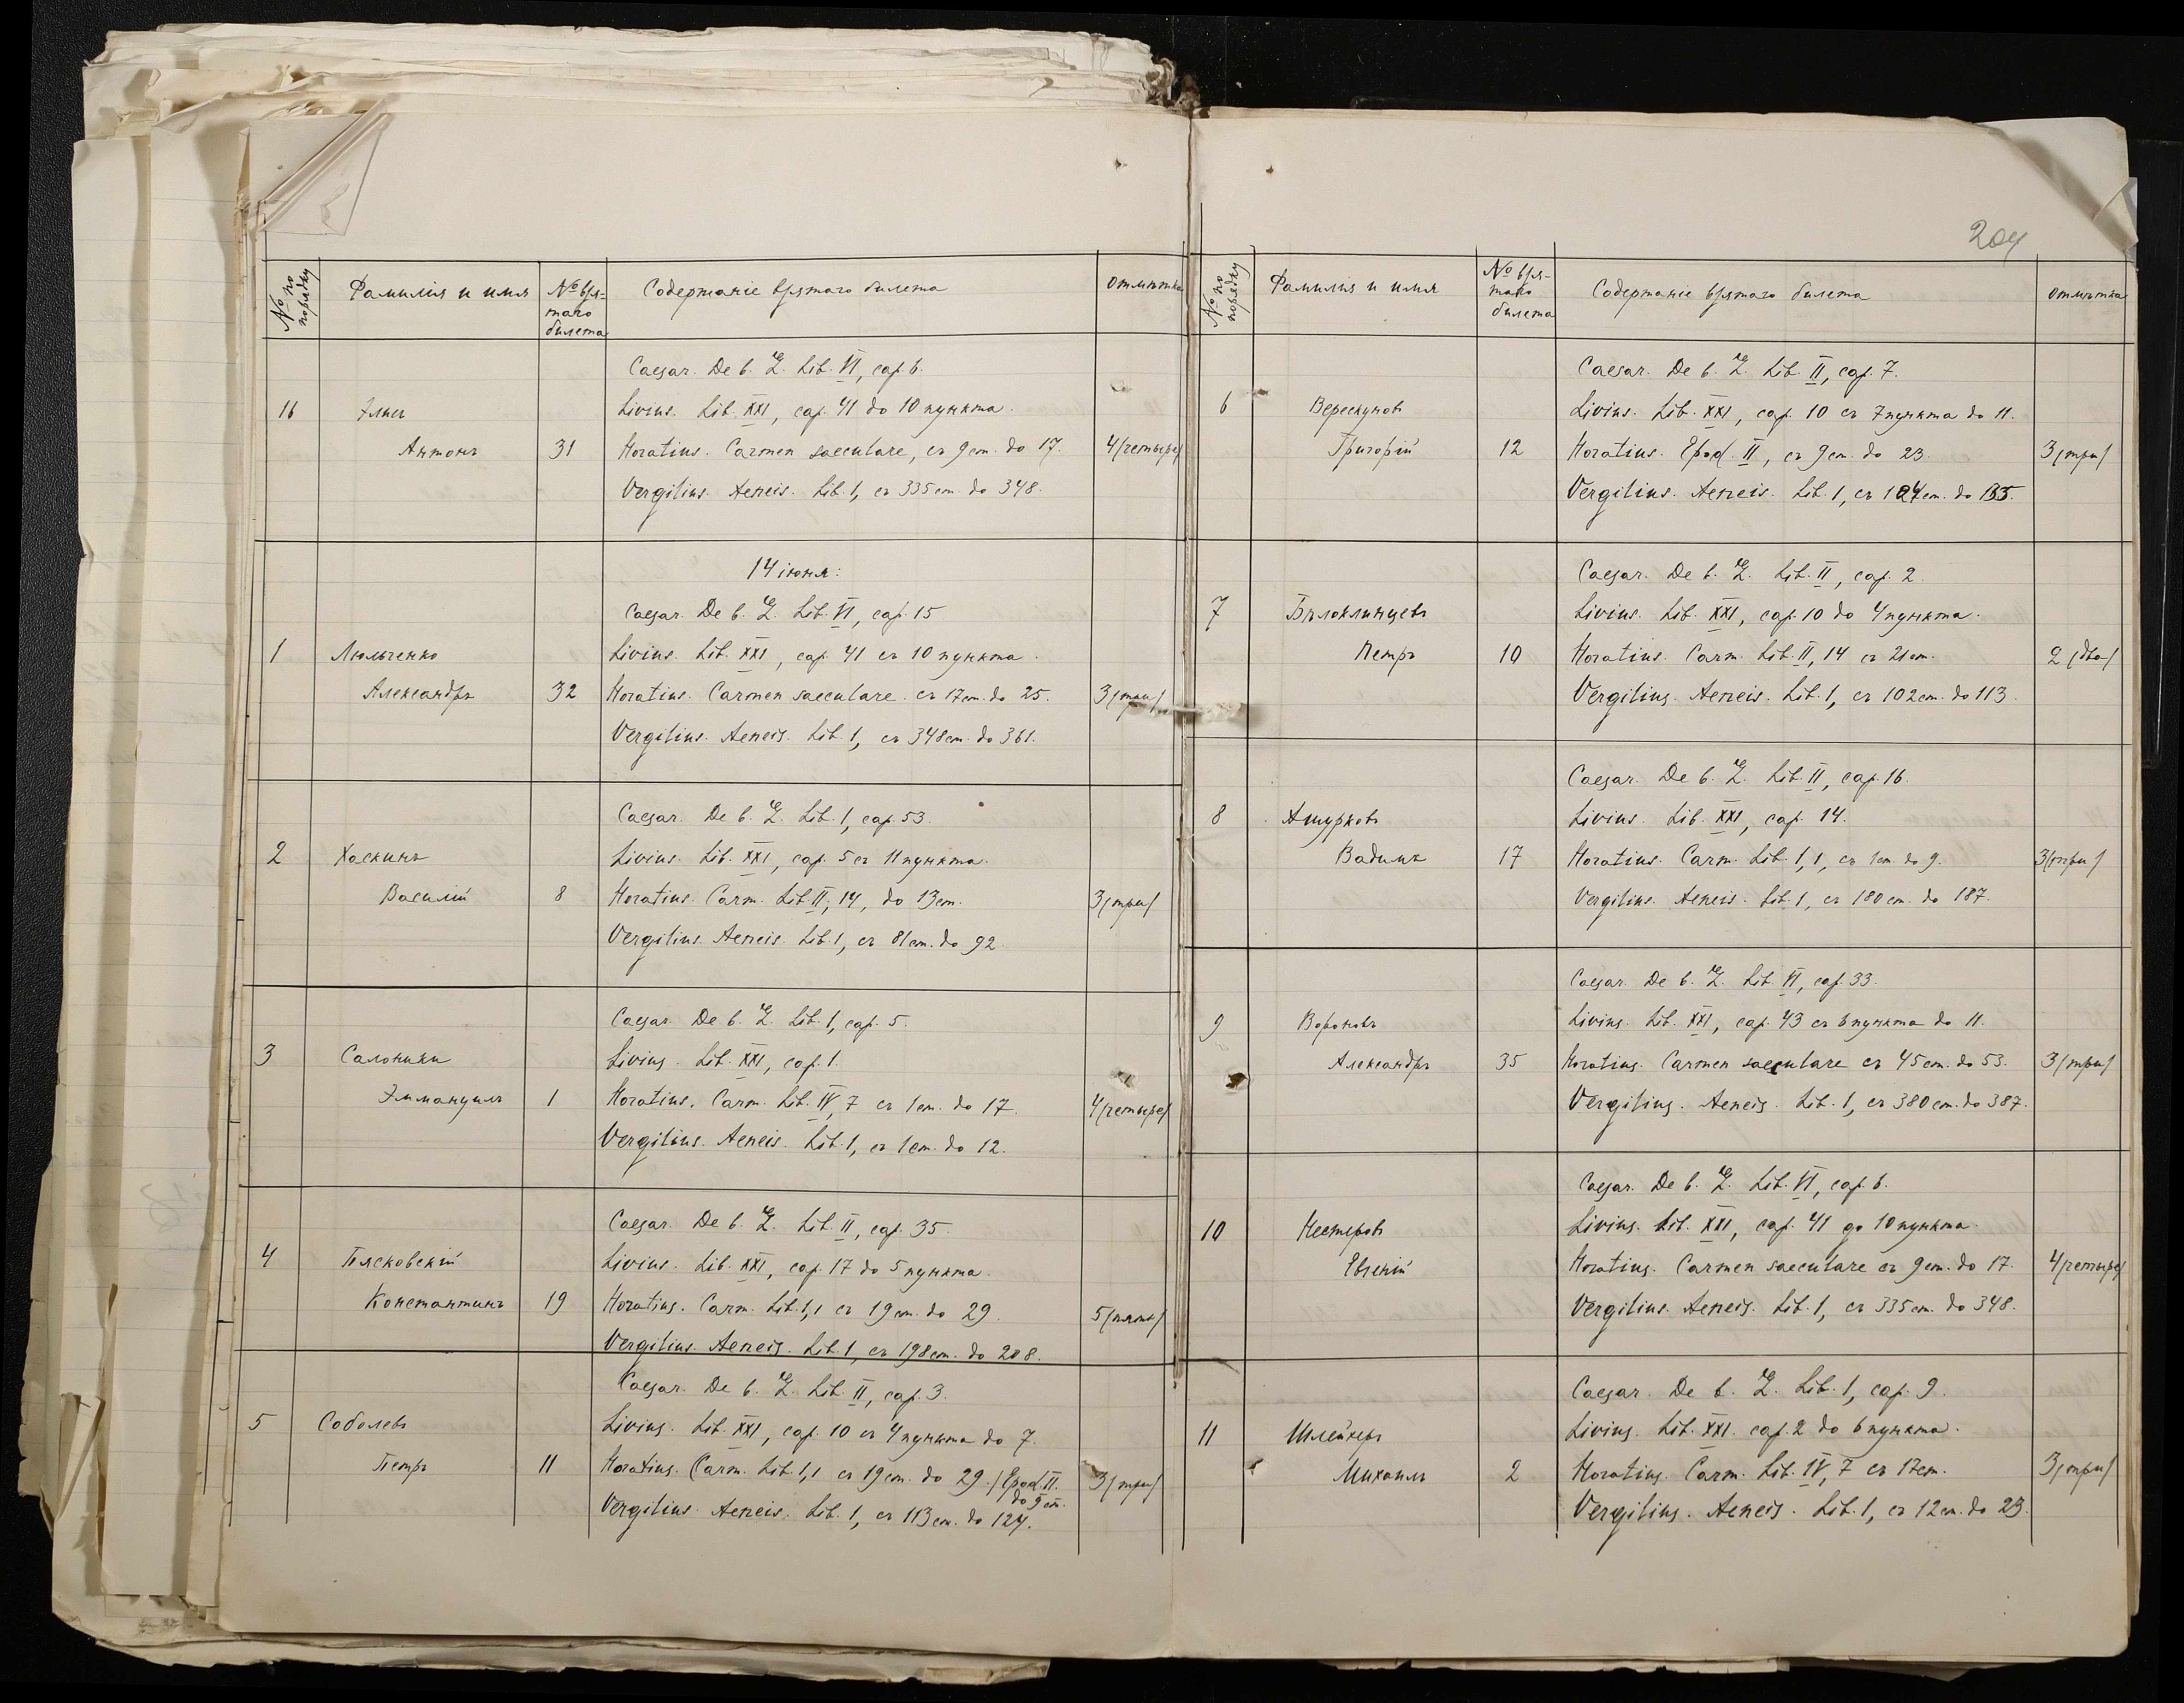 № по порядку
Фамилія и имя
№ взя-
таго
билета
Содержаніе взятаго билета
Отмѣтка
Caesar. De b. G. Lib. VI, cap. 6.
16
Livius. Lib. XXI, cap. 41 до 10 пункта.
Антонъ 31 Horatius. Carmen saeculare, съ 9 ст. до 17. 4 (четыре)
Vergilius. Aeneis. Lib. 1, съ 335 ст. до 348.
14 іюня:
Caesar. De b. G. Lib. VI, cap. 15
1 Люльченко Livius. Lib. XXI, cap. 41 съ 10 пункта.
Александръ 32 Horatius. Carmen saeculare. съ 17 ст. до 25. 3 (три)
Vergilius. Aeneis. Lib. 1, съ 348 ст. до 361.
Caesar. De b. G. Lib. 1, cap. 53.
2 Хаскинъ Livius. Lib. XXI, cap. 5 съ 11 пункта.
Василій 8 Horatius. Carm. Lib. II, 14, до 13 ст. 3 (три)
Vergilius. Aeneis. Lib. 1, съ 81 ст. до 92.
Caesar. De b. G. Lib. 1, cap. 5.
3 Салоники Livius. Lib. XXI, cap. 1.
Эммануилъ 1 Horatius. Carm. Lib. IV, 7 съ 1 ст. до 17. 4 (четыре)
Vergilius. Aeneis. Lib. 1, съ 1 ст. до 12.
Caesar. De b. G. Lib. II, cap. 35.
4 Плсковскій Livius. Lib. XXI, cap. 17 до 5 пункта.
Константинъ 19 Horatius. Carm. Lib. 1,1 съ 19 ст. до 29. 5 (пять)
Vergilius. Aeneis. Lib. 1, съ 198 ст. до 208.
Caesar. De b. G. Lib. II, cap. 3.
5 Соболевъ Livius. Lib. XXI, cap. 10 съ 4 пункта до 7.
Петръ 11 Horatius. Carm. Lib. 1,1 съ 19 ст. до 29. / Epod II. 3 (три)
до 9 ст.
Vergilius. Aeneis. Lib. 1, съ 113 ст. до 124.
204
№ по порядку
Фамилія и имя
№ взя-
таго
билета
Содержаніе взятаго билета
Отмѣтка
Caesar. De b. G. Lib. II, cap. 7.
6 Верескуновъ Livius. Lib. XXI, cap. 10 съ 7 пункта до 11.
Григорій 12 Horatius. Epod. II, съ 9 ст. до 23. 3 (три)
Vergilius. Aeneis. Lib. 1, съ 124 ст. до 135.
Caesar. De b. G. Lib. II, cap. 2.
7 Бѣлоклинцевъ Livius. Lib. XXI, cap. 10 до 4 пункта.
Петръ 10 Horatius. Carm. Lib. II, 14 съ 21 ст. 2 (два)
Vergilius. Aeneis. Lib. 1, съ 102 ст. до 113.
Caesar. De b. G. Lib. II, cap. 16.
8 Ашурковъ Livius. Lib. XXI, cap. 14.
Вадимъ 17 Horatius. Carm. Lib. 1, 1, съ 1 ст. до 9. 3 (три)
Vergilius. Aeneis. Lib. 1, съ 180 ст. до 187.
Caesar. De b. G. Lib. VI, cap. 33.
9 Вороновъ Livius. Lib. XXI, cap. 43 съ 6 пункта до 11.
Александръ 35 Horatius. Carmen saeculare съ 45 ст. до 53. 3 (три)
Vergilius. Aeneis. Lib. 1, съ 380 ст. до 387.
Caesar. De b. G. Lib. VI, cap. 6.
10 Нестеровъ Livius. Lib. XXI, cap. 41 до 10 пункта.
Евгеній Horatius. Carmen saeculare съ 9 ст. до 17. 4 (четыре)
Vergilius. Aeneis. Lib. 1, съ 335 ст. до 348.
Caesar. De b. G. Lib. 1, cap. 9.
11 Шлейхеръ Livius. Lib. XXI. cap. 2 до 6 пункта.
Михаилъ 2 Horatius. Carm. Lib. IV, 7 съ 17 ст. 3 (три)
Vergilius. Aeneis. Lib. 1, съ 12 ст. до 23.